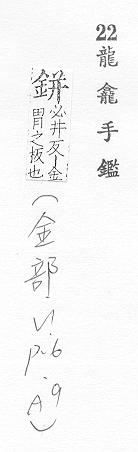 22 龍龕手鑑
鉼 必井反丨金
胃之扳也
(金部、V1.
p.6.
9
A)